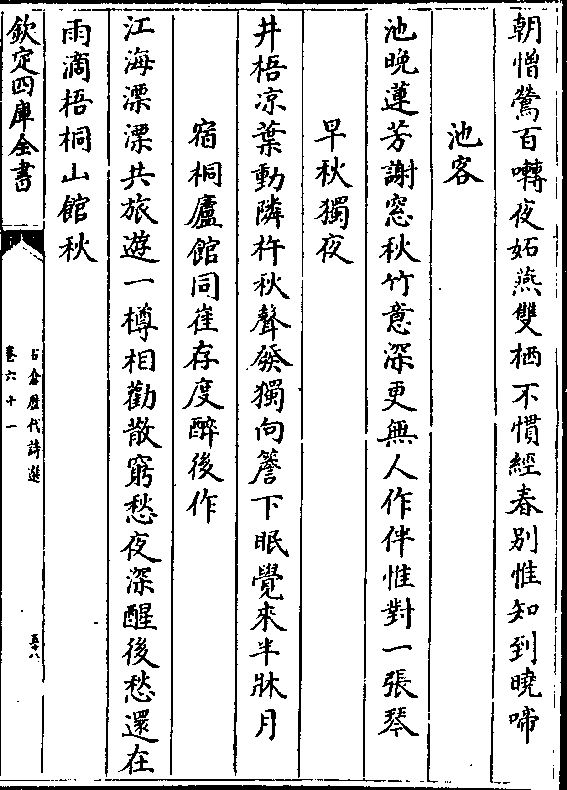 朝憎鶯百囀夜妬燕雙栖不慣經春別惟知到曉啼
池客
池晚蓮芳謝窓秋竹意深更無人作伴惟對一張琴
早秋獨夜
井梧凉葉動隣杵秋聲發獨向簷下眠覺來半牀月
宿桐廬館同崔存度醉後作
江海漂漂共旅遊一樽相勸散窮愁夜深醒後愁還在
雨滴梧桐山館秋
欽定四庫全書
石倉歷代詩選
卷六十一